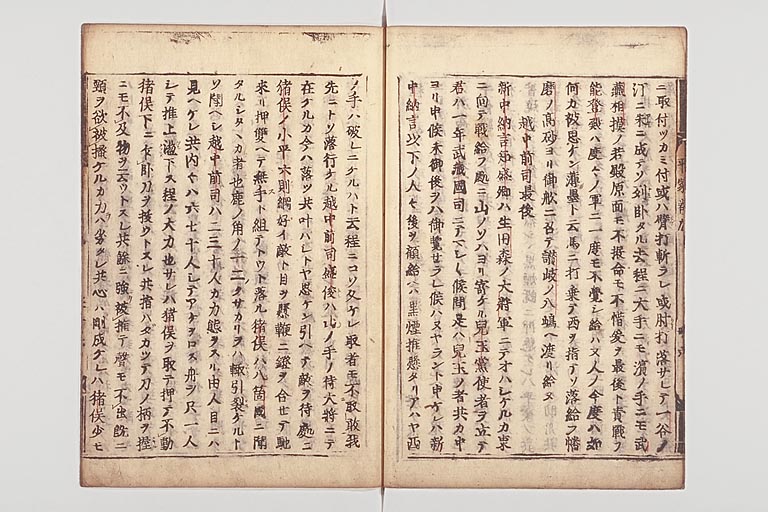 ニ取付ツカミ付或ハ臂打斬ラレ或肘打落サレテ一谷ノ
汀ニ朱ニ成テソ列臥タル去程ニ大手ニモ濱ノ手ニモ武
蔵相摸ノ若殿原面モ不振命モ不惜爰ヲ最後ト責戦フ
能登殿ハ度々ノ軍ニ一度モ不覺シ給ハヌ人ノ今度ハ如
何カ被思ケン薄墨ト云馬ニ打乗テ西ヲ指テソ落給フ幡
磨ノ高砂ヨリ御舩ニ召テ讃岐ノ八嶋ヘ渡リ給ヌ
越中前司最後
新中納言知盛卿ハ生田森ノ大将軍ニテオハシケルカ東
ニ向テ戦給フ處ニ山ノソハヨリ寄ケル兒玉黨使者ヲ立テ
君ハ一年武蔵國司ニテマシ〱候間是ハ兒玉ノ者共カ中
ヨリ申候未御後ヲハ御覧セラレ候ハヌヤラント申ケレハ新
中納言以下ノ人々後ヲ顧給ヘハ黒煙推懸タリアハヤ西
ノ手ハ破レニケルハト云程コソ久ケレ取者モ不取敢我
先ニトソ落行ケル越中前司盛俊ハ山ノ手ノ侍大将ニテ
在ケルカ今ハ落ツ共叶ハシトヤ思ケン引ヘテ敵ヲ待處ニ
猪俣ノ小平六則綱好イ敵ト目ヲ懸鞭ニ鐙ヲ合セテ馳
来リ押雙ヘテ無手ト組テトウト落ル猪俣ハ八箇國ニ聞
タルシタヽカ者也鹿ノ角ノ一二ノクサカリヲハ輙引裂ケルト
ソ聞ヘシ越中前司ハ二三十人カ力態ヲスル由人目ニハ
見ヘケレ共内々ハ六七十人シテアケヲロス舟ヲ只一人
シテ推上推下ス程ノ大力也サレハ猪俣ヲ取テ押テ不動
猪俣下ニ乍卧刀ヲ抜ウトスレ共指ハタカツテ刀ノ柄ヲ握
ニモ不及物ヲ云ウトスレ共餘ニ強被推テ聲モ不出既ニ
頸ヲ欲被掻ケルカ力ハ劣タレ共心ハ剛成ケレハ猪俣少モ